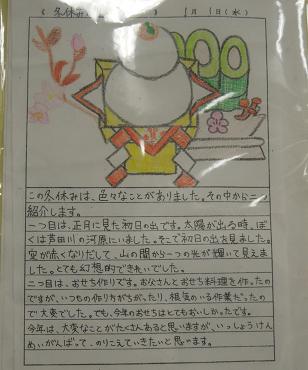 (冬休み
1月1日(水)
この冬休みは、色々なことがありました。その中から二つ
紹介します。
一つ目は、正月に見た初日の出です。太陽が出る時、ぼ
くは芦田川の河原にいました。そこで初日の出を見ました。
空が赤くなりだして、山の間から一つの光が輝いて見えま
した。とても幻想的できれいでした。
二つ目は、おせち作りです。お父さんとおせち料理を作ったの
ですが、いつもの作り方がちがったり、根気のいる作業だったの
で大変でした。でも、今年のおせちはとてもおいしかったです。
今年は、大変なことがたくさんあると思いますが、いっしょうけん
めいがんばって、のりこえていきたいと思います。